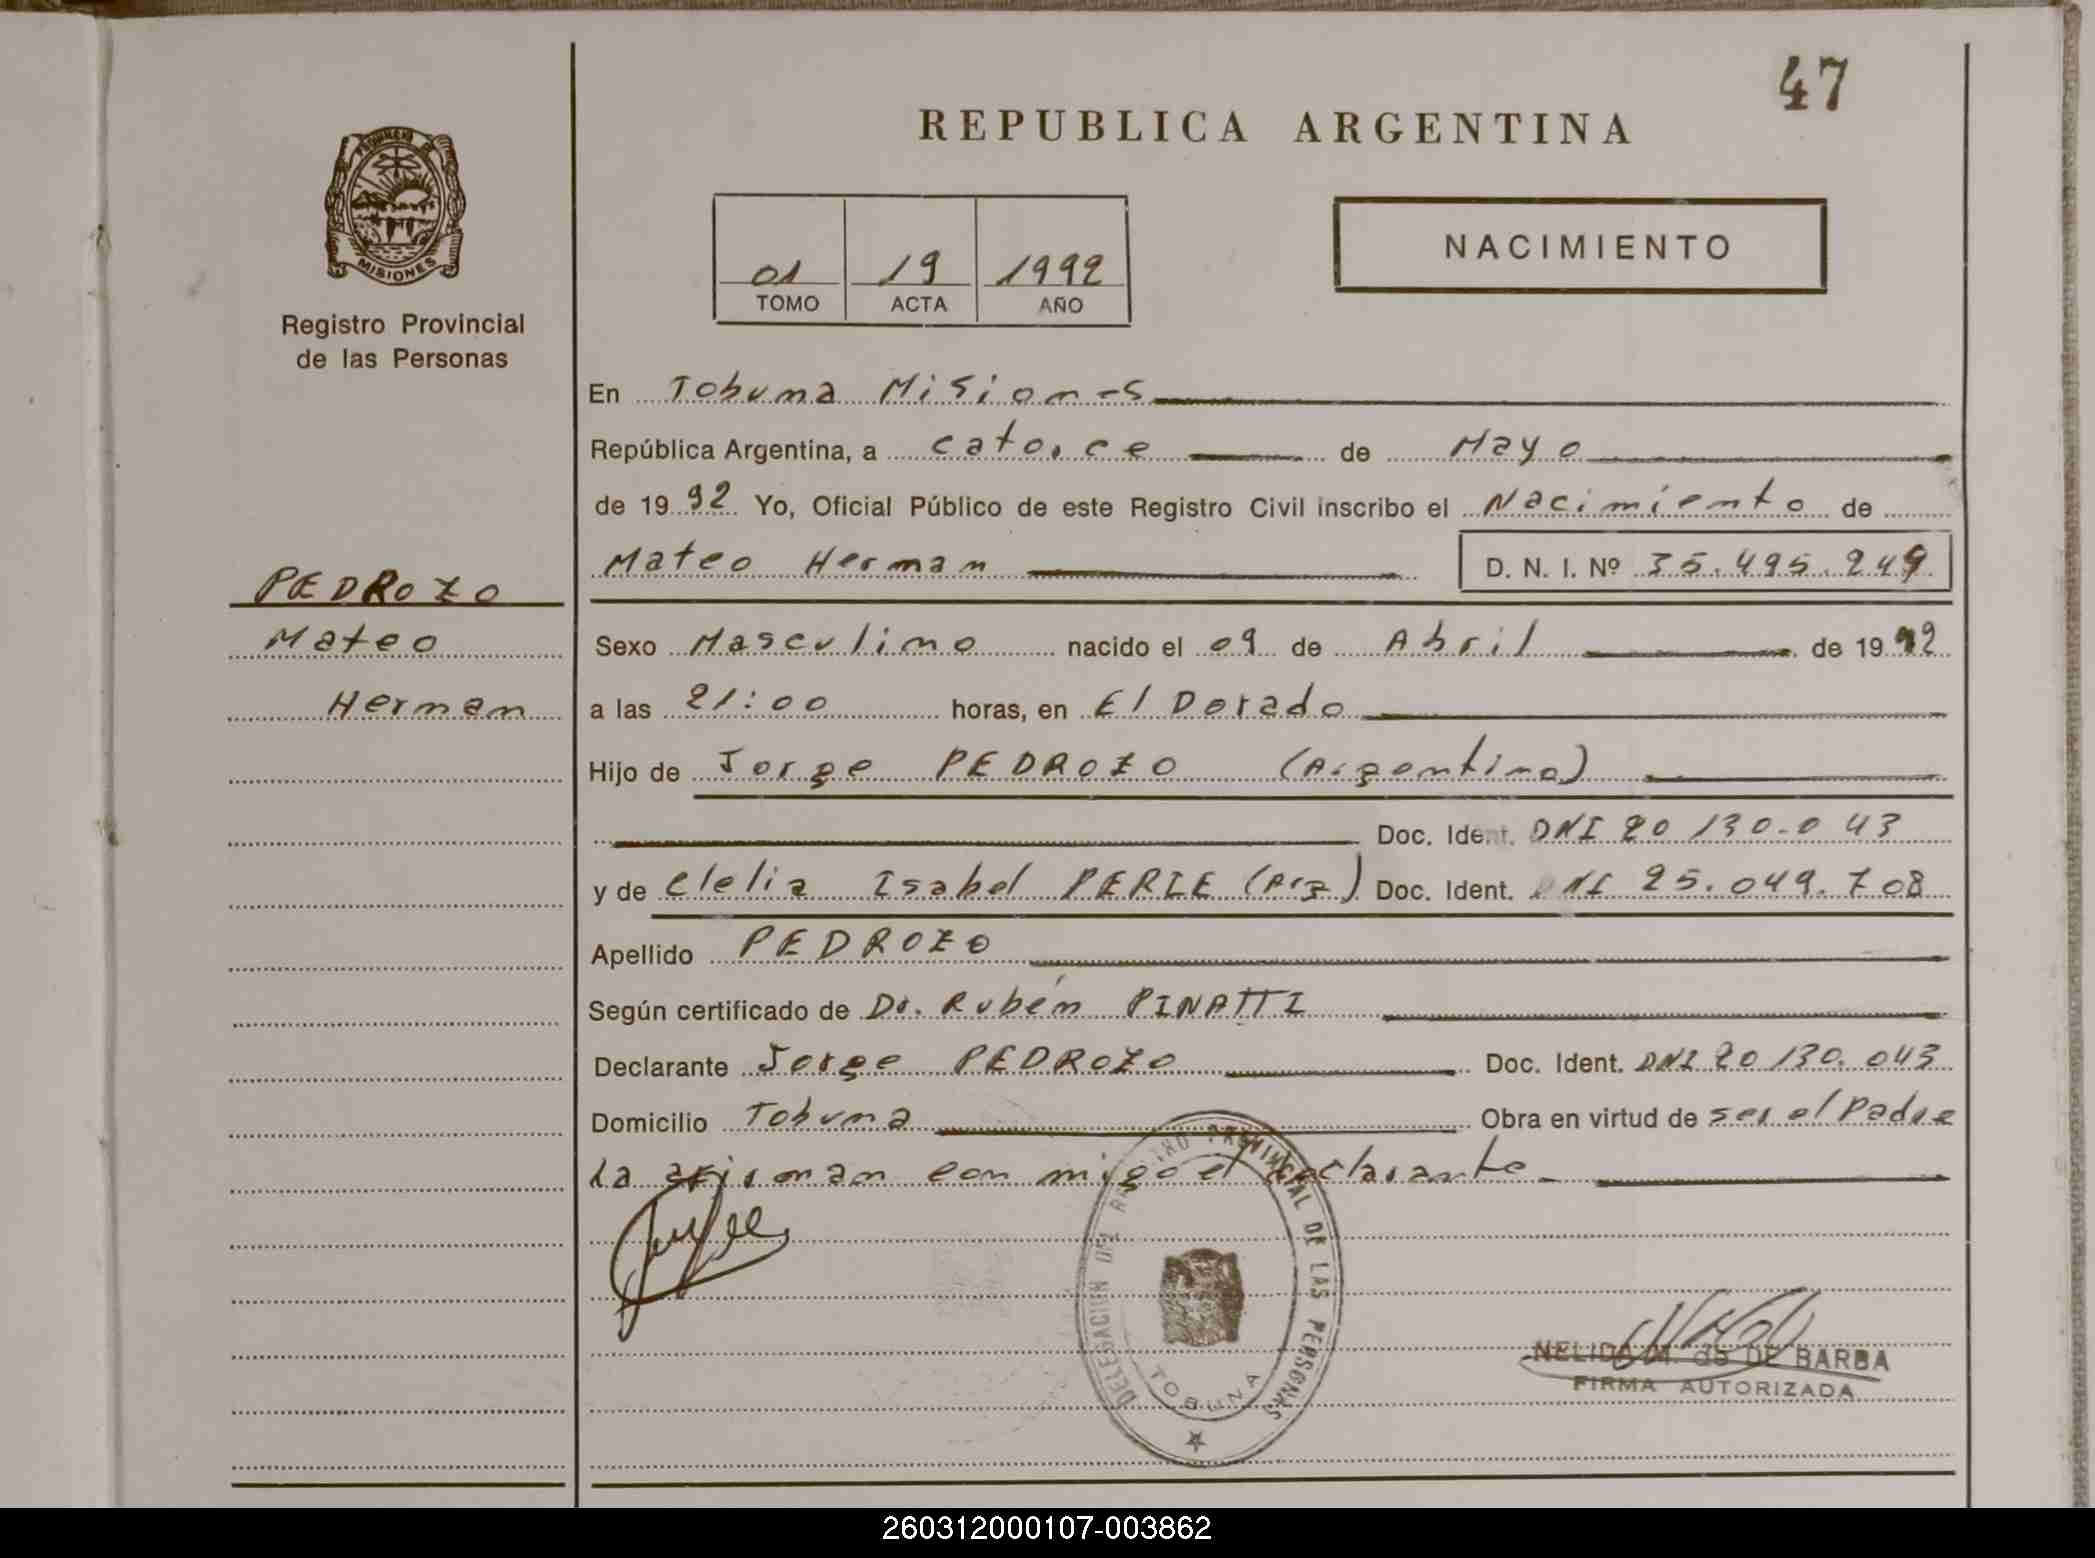 47
REPUBLICA ARGENTINA
MISIONES
Registro Provincial
de las Personas
01 19 1992
TOMO ACTA AÑO
NACIMIENTO
En Tobuna Misiones
República Argentina, a catorce de Mayo
de 1992 Yo, Oficial Público de este Registro Civil inscribo el Nacimiento de
Mateo Herman D. N. I. Nº 35.495.249
PEDROZO
Mateo
Herman
Sexo Masculino nacido el 09 de Abril de 1992
a las 21:00 horas, en El Dorado
Hijo de Jorge PEDROZO (Argentino)
Doc. Ident. DNI 20 130.043
y de Clelia Isabel PERIE (Arg) Doc. Ident. DNI 25.049.708
Apellido PEDROZO
Según certificado de Dr. Rubén PINATTI
Declarante Jorge PEDROZO Doc. Ident. DNI 20 130.043
Domicilio Tobuna Obra en virtud de ser el Padre
La firman con migo el declarante
DELEGACION DEL REGISTRO PROVINCIAL DE LAS PERSONAS
TOBUNA
NELIDA M. de DE BARBA
FIRMA AUTORIZADA
260312000107-003862